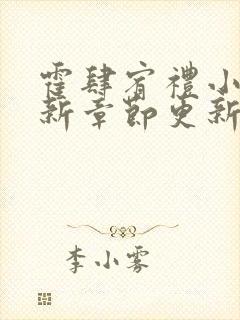 霍肆宥禮小
新章節更新
李小雾